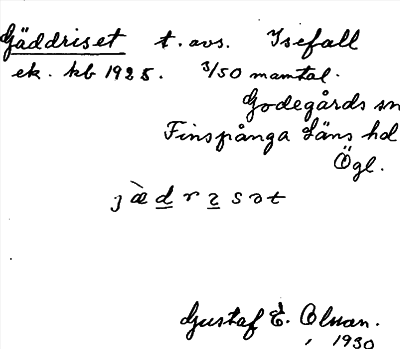 Gäddriset t. avs. Isefall
ek. kb 1925. 3/50 mamtal.
Godegårds sn
Finspånga Läns hd
Ögl.
j æ̀ d r ɪ s ə t
Gustaf E.
1930